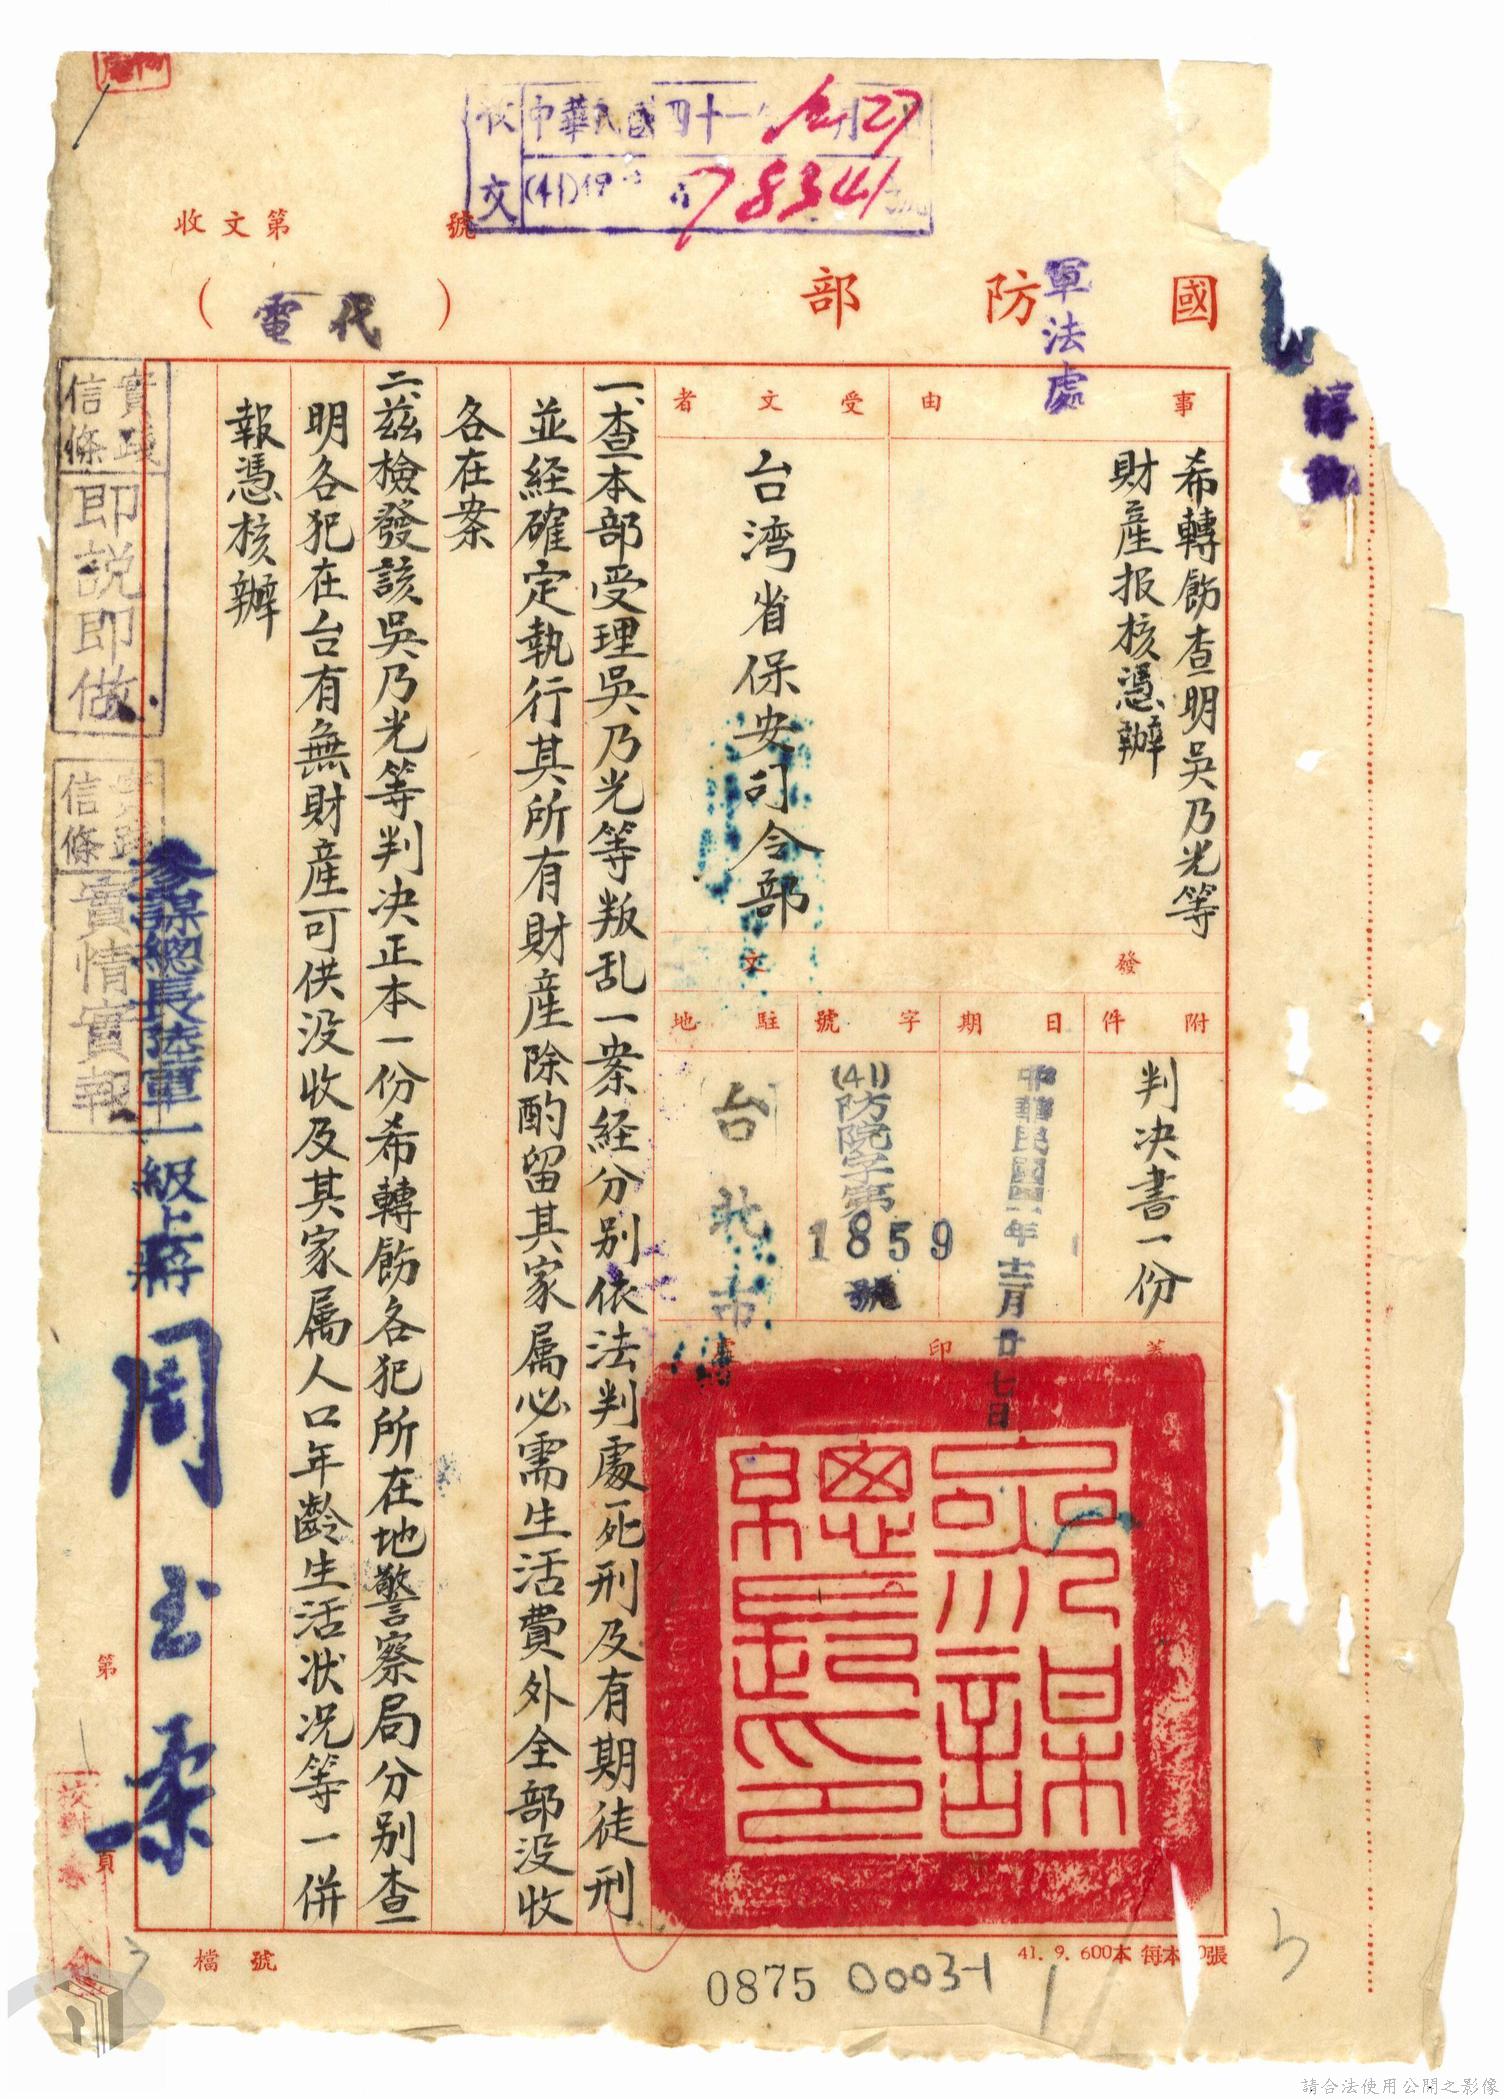 中華民國四十一年 月27
收文
(41) 78341號
收文第 號
國防部
(代電)
軍法處
事由
希轉飭查明吳乃光等
財產报核憑辦
受文者
台湾省保安司令部
發文
附件
判决書一份
日期
中華民國四一年十二月廿七日
字號
(41)防院字第
1859
號
駐地
台北市
蓋印
參謀總長印
一、查本部受理吳乃光等叛乱一案経分别依法判處死刑及有期徒刑
並経確定執行其所有財產除酌留其家属必需生活費外全部没收
各在案
二、茲檢發該吳乃光等判决正本一份希轉飭各犯所在地警察局分别查
明各犯在台有無財產可供没收及其家属人口年齡生活狀况等一併
報憑核辦
參謀總長陸軍一級上將周至柔
實踐信條
即説即做
實踐信條
實情實報
第 頁
校對
檔號
0875 00031
41. 9. 600本 每本 0張
請合法使用公開之影像